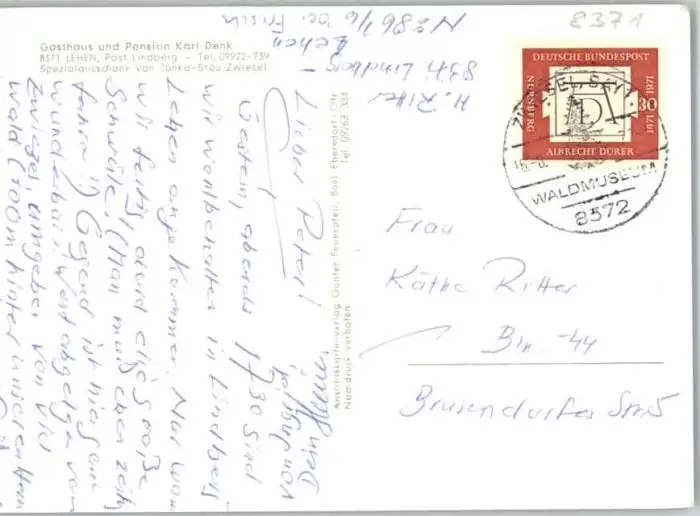 Gasthaus und Pension Karl Denk
8371 LEHEN, Post Lindberg - Tel. 09922-739
Spezialausschank von Janka-Bräu Zwiesel
H. Ritter
8371 Lindberg -
Lehen
No 86 1/6 be. Frisch
Lieber Peter!
Gestern, abends 17 30 sind
wir wohlbehalten in Lindberg
Lehen angekommen. Nur waren
wir fertig durch die große
Schwüle! (Man muß bei zeiten
fahren!) Gegend ist hier ganz
wunderbar! Weit abgelegen von
Zwiesel, umgeben von viel
Wald (100m hinter unserem Haus
Ansichtskartenverlag Günter Feuerpfeil, Post Ebersdorf/Ofr.
Tel. 09263 334
Nachdruck verboten
8371
DEUTSCHE BUNDESPOST
NÜRNBERG
1471
1971
30
AD
ALBRECHT DÜRER
ZWIESEL, BAY.
WALDMUSEUM
8372
Frau
Käthe Ritter
Bln -44
Brusendorfer Str 5